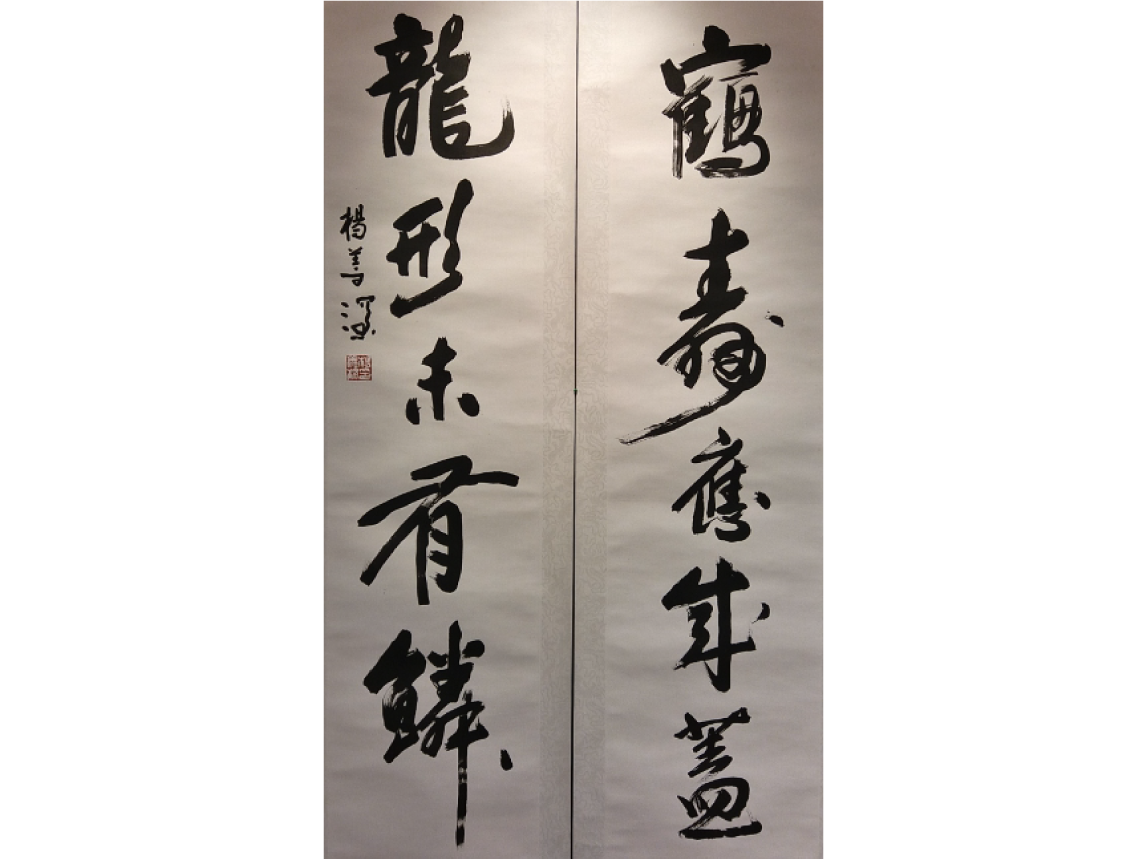 鶴壽應成蓋
龍形未有鱗
楊善深